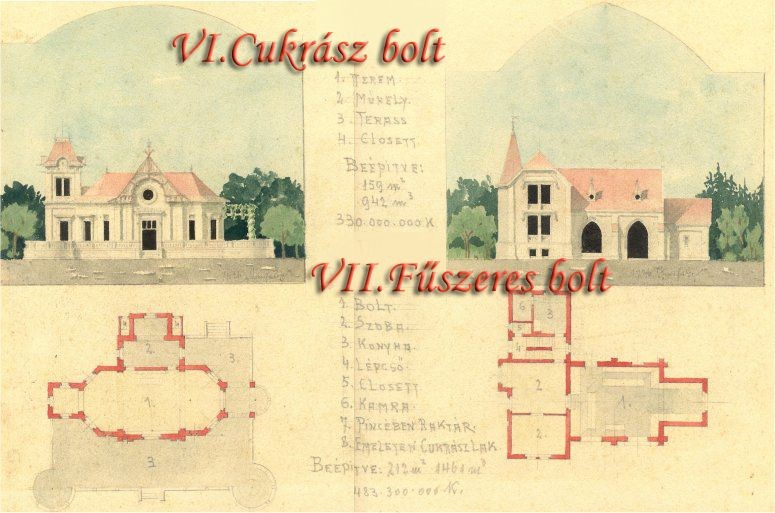 VI.Cukrász bolt
1. Terem.
2. Műhely.
3. Terass
4. Closett.
Beépitve:
159 m²
942 m³
330.000.000 K
VII.Fűszeres bolt
1. Bolt.
2. Szoba.
3. Konyha
4. Lépcső
5. Closett
6. Kamra
7. Pinczében Raktár.
8. Emeleten Cukrászlak.
Beépitve: 212 m² 1461 m³
483.300.000 K.
2.
3.
1.
3
6
3
5
4
2
1.
2.